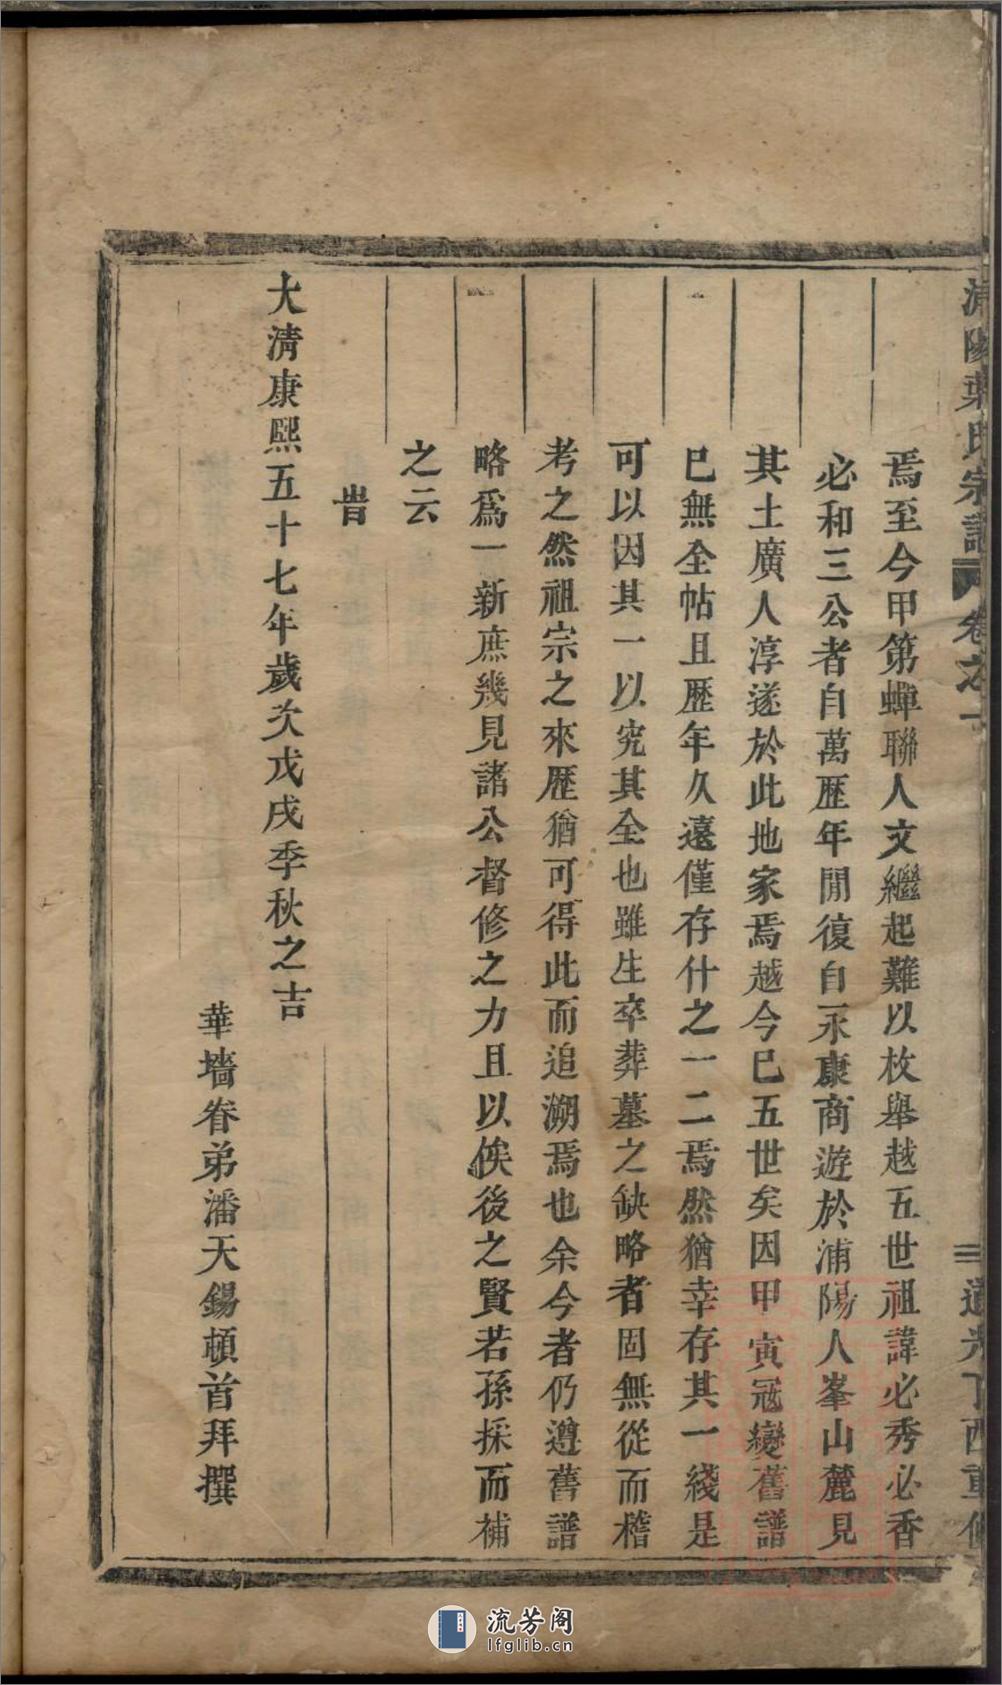 浦陽葉氏宗譜 卷之一 三 道光丁酉重修
焉至今甲第蟬聯人文繼起難以枚舉越五世祖諱必秀必香
必和三公者自萬歷年間復自永康商遊於浦陽人峯山麓見
其土廣人淳遂於此地家焉越今已五世矣因甲寅冦變舊譜
已無全帖且歷年久遠僅存什之一二焉然猶幸存其一綫是
可以因其一以究其全也雖生卒葬墓之缺略者固無從而稽
考之然祖宗之來歷猶可得此而追溯焉也余今者仍遵舊譜
略爲一新庶幾見諸公督修之力且以俟後之賢若孫採而補
之云
旹
大清康熙五十七年歲次戊戌季秋之吉
華墻眷弟潘天錫頓首拜撰
流芳阁
lfglib.cn